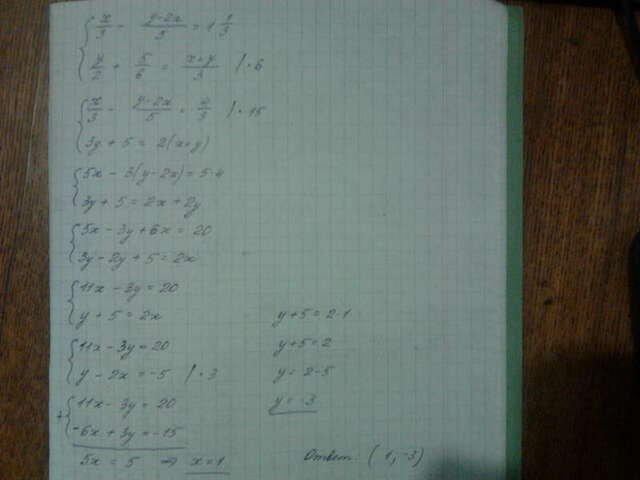 x/3 - (y-2x)/5 = 1 1/3
x/2 + 5/6 = (x+y)/3 | · 6
x/3 - (y-2x)/5 = 4/3 | · 15
3y + 5 = 2(x+y)
5x - 3(y-2x) = 5·4
3y + 5 = 2x + 2y
5x - 3y + 6x = 20
3y - 2y + 5 = 2x
11x - 3y = 20
y + 5 = 2x
11x - 3y = 20
y - 2x = -5 | · 3
+ 11x - 3y = 20
-6x + 3y = -15
5x = 5 ⇒ x = 1
y+5 = 2·1
y+5 = 2
y = 2-5
y = -3
Ответ: (1, -3)